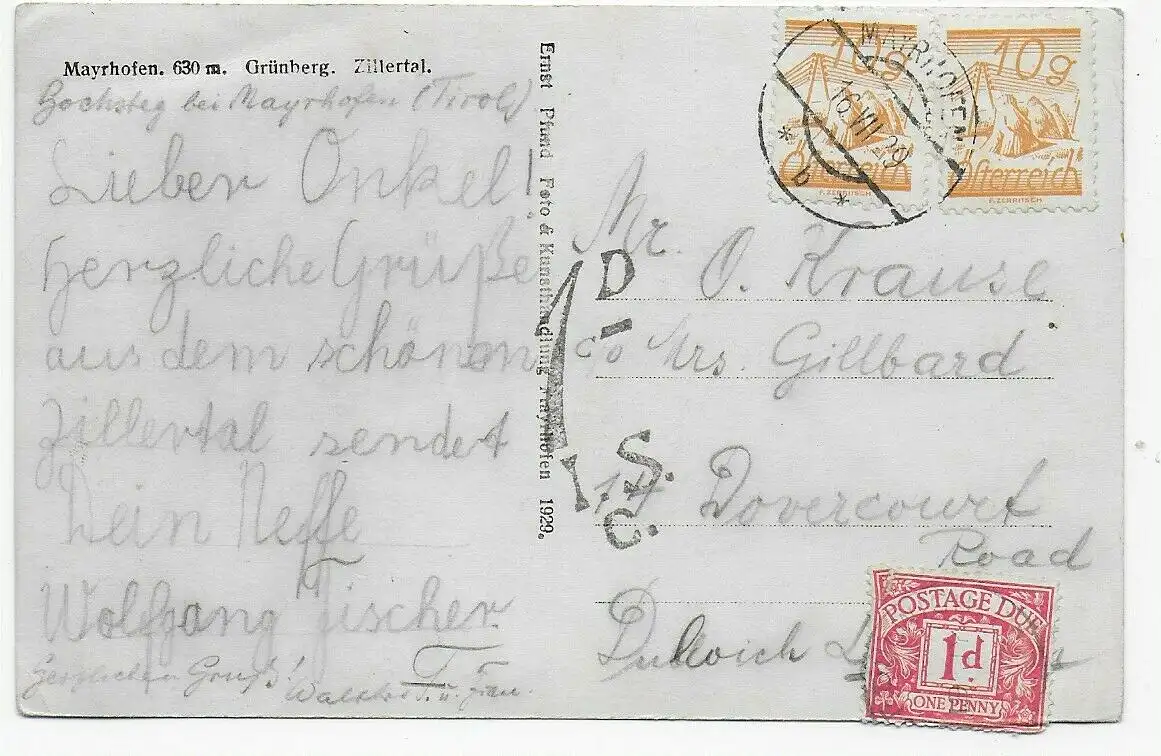 Mayrhofen. 630 m. Grünberg. Zillertal.
Hochsteg bei Mayrhofen (Tirol)
Lieber Onkel!
Herzliche Grüße
aus dem schönen
Zillertal sendet
Dein Neffe
Wolfgang Fischer
Herzlichen Gruß!
F. u. Frau.
Ernst Pfund Foto & Kunsthandlung Mayrhofen 1929.
10g
Österreich
F. ZERRITSCH
10g
Österreich
F. ZERRITSCH
MAYRHOFEN
16.VII.29
* b *
Mr. O. Krause
c/o Mrs. Gillbard
17 Dovercourt
Road
Dulwich
1 D
I.S.
C.
POSTAGE DUE
1d
ONE PENNY